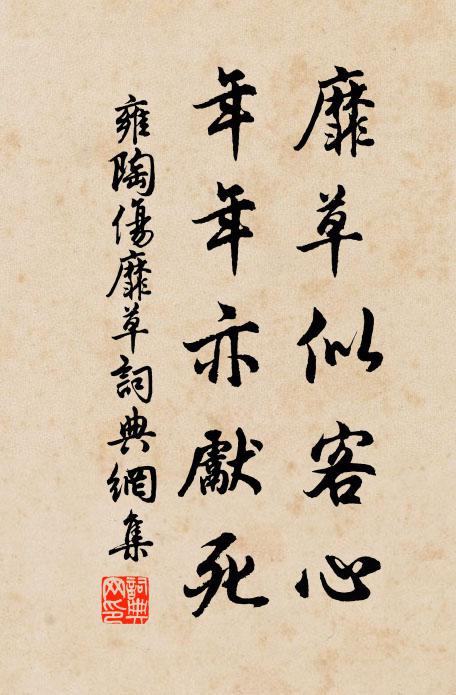 靡草似客心
年年亦獻死
雍陶傷靡草詞典網集
詞典
网印